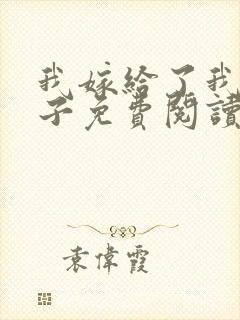 我嫁給了我
子免費閱讀
袁偉霞